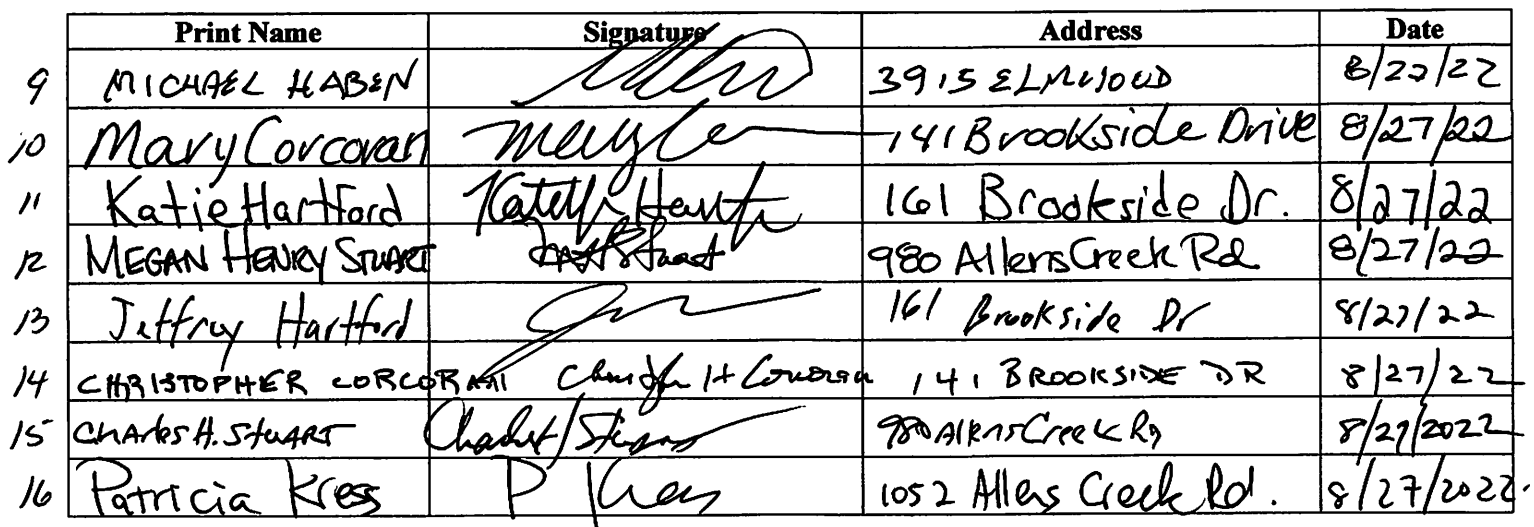 Print Name Signature Address Date
9 MICHAEL HABEN 3915 ELMWOOD 8/27/22
10 Mary Corcoran 141 Brookside Drive 8/27/22
11 Katie Hartford 161 Brookside Dr. 8/27/22
12 MEGAN HENRY STUART 980 Allens Creek Rd 8/27/22
13 Jeffrey Hartford 161 Brookside Dr 8/27/22
14 CHRISTOPHER CORCORAN Christopher H Corcoran 141 BROOKSIDE DR 8/27/22
15 CHARles H. StuART 980 Allens Creek Rd 8/27/2022
16 Patricia Kress P Kress 1052 Allens Creek Rd. 8/27/2022.